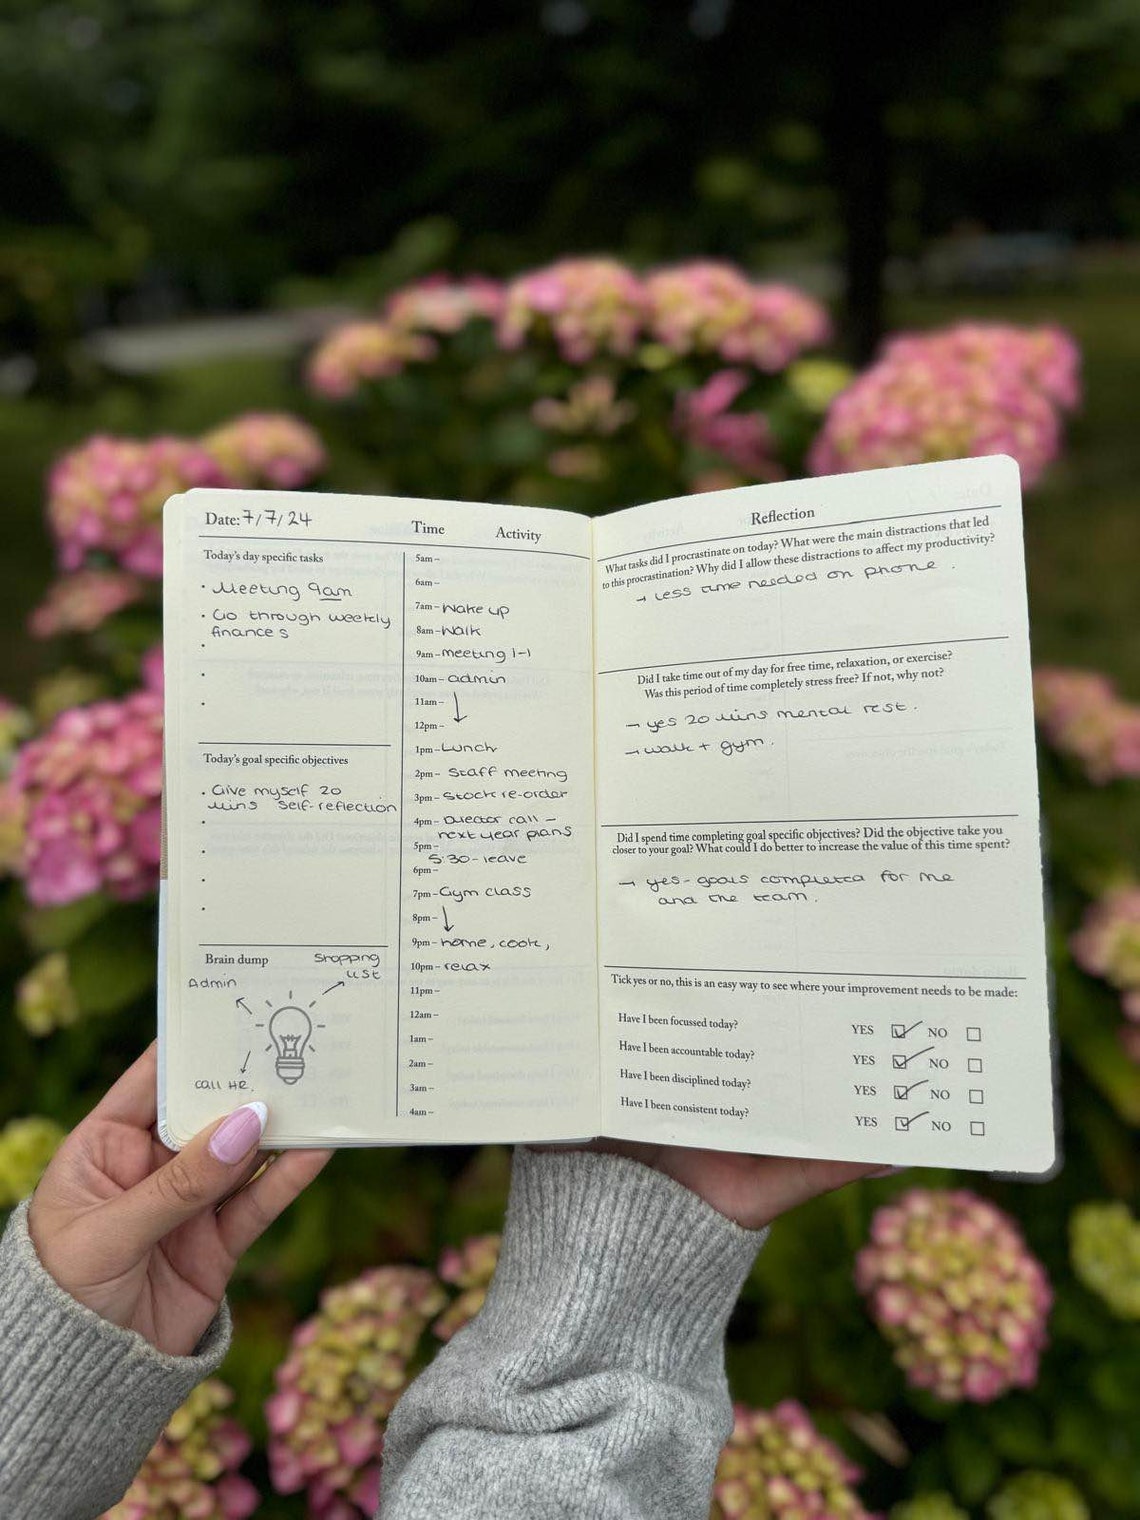 Date: 7/7/24
Today's day specific tasks
• Meeting 9am
• Go through weekly
finances
•
•
•
Today's goal specific objectives
• Give myself 20
mins self-reflection
•
•
•
•
Brain dump
Shopping
list
Admin
call HR.
Time Activity
5am –
6am –
7am – Wake up
8am – Walk
9am – meeting 1-1
10am – admin
11am –
12pm –
1pm – Lunch
2pm – Staff meeting
3pm – Stock re-order
4pm – Director call –
next year plans
5pm –
5:30 - leave
6pm –
7pm – Gym class
8pm –
9pm – home, cook,
10pm – relax
11pm –
12am –
1am –
2am –
3am –
4am –
Reflection
What tasks did I procrastinate on today? What were the main distractions that led
to this procrastination? Why did I allow these distractions to affect my productivity?
→ Less time needed on phone.
Did I take time out of my day for free time, relaxation, or exercise?
Was this period of time completely stress free? If not, why not?
→ yes 20 mins mental rest.
→ walk + gym.
Did I spend time completing goal specific objectives? Did the objective take you
closer to your goal? What could I do better to increase the value of this time spent?
→ yes - goals completed for me
and the team.
Tick yes or no, this is an easy way to see where your improvement needs to be made:
Have I been focussed today? YES ☑ NO ☐
Have I been accountable today? YES ☑ NO ☐
Have I been disciplined today? YES ☑ NO ☐
Have I been consistent today? YES ☑ NO ☐